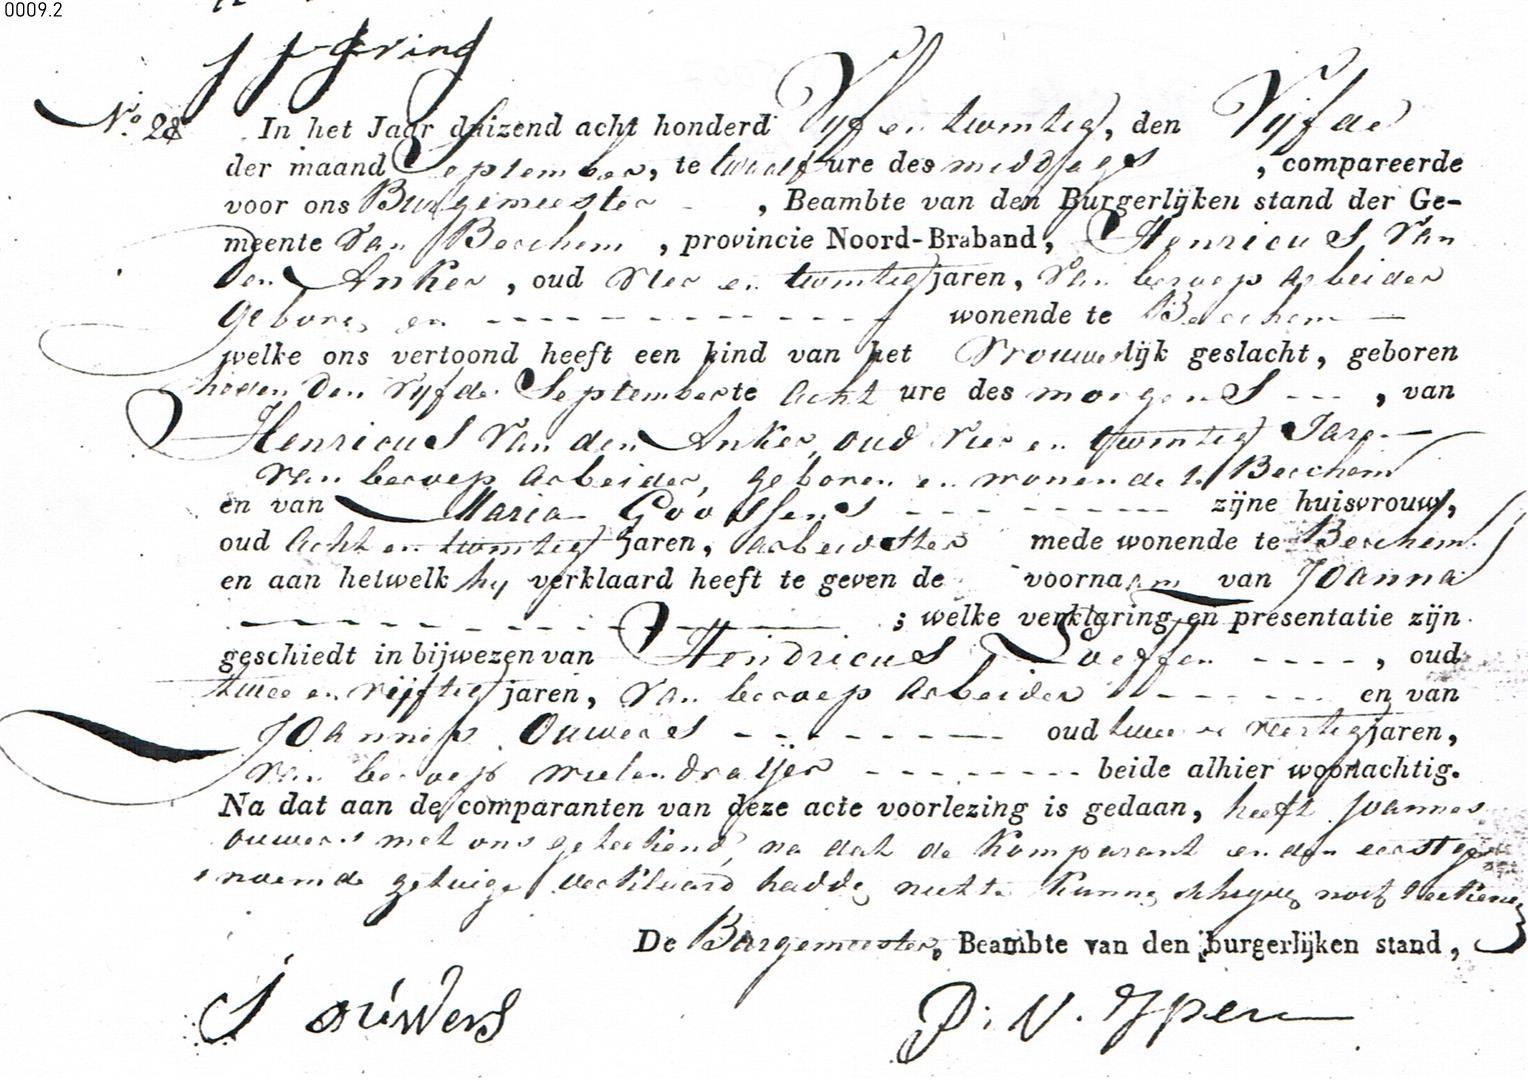 0009.2
No. 28
In het Jaar duizend acht honderd Vyf en twintig, den Vijfde
der maand September, te twaalf ure des middags , compareerde
voor ons Burgemeester - , Beambte van den Burgerlijken stand der Ge-
meente van Berchem , provincie Noord-Braband, Henricus van
den Anker , oud vier en twintig jaren, van beroep arbeider
geboren en - - - - - - - - - - - - wonende te Berchem
welke ons vertoond heeft een kind van het Vrouwelijk geslacht, geboren
heden den vyfde September te acht ure des morgens - - - , van
Henricus van den Anker, oud vier en twintig Jare
van beroep arbeider, geboren en wonende te Berchem
en van Maria Goossens - - - - - - - - - zijne huisvrouw,
oud acht en twintig jaren, arbeidster mede wonende te Berchem
en aan hetwelk hy verklaard heeft te geven de voornaam van Joanna
- - - - - - - - - - - - ; welke verklaring en presentatie zijn
geschiedt in bijwezen van Hendricus Loeffen - - - - , oud
twee en vijftig jaren, van beroep arbeider - - - - - en van
Joannes Ouwers - - - - - - - - oud twee en veertig jaren,
van beroep wielendraijer - - - - - - - - beide alhier woonachtig.
Na dat aan de comparanten van deze acte voorlezing is gedaan, heeft Joannes
ouwers met ons geteekend, na dat de Komparant en den eerstge
noemde getuige verklaard hadde niet te kunne schryve noch teekene
De Burgemeester, Beambte van den burgerlijken stand,
J ouwers